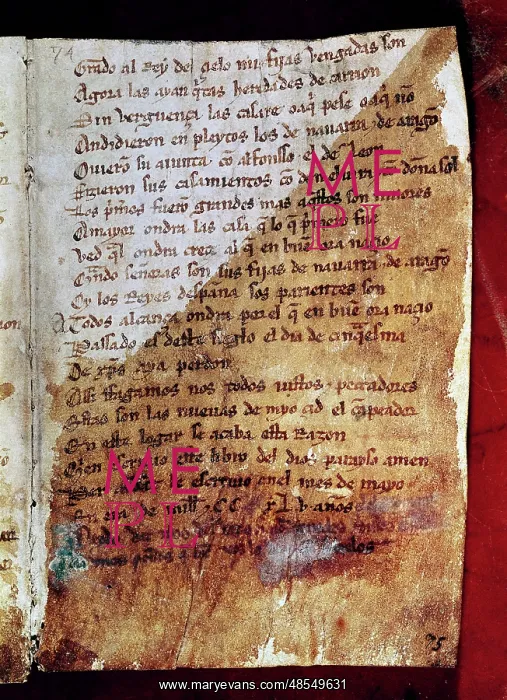 74
Grado al Rey del çielo mis fijas vengadas son
Agora las ayan q̃tas heredades de carrion
Sin verguença las casare o aq̃ pese o aq̃ no
Andidieron en pleytos los de nauarra ⁊ de aragõ
Ouierõ su aiunta cõ alfonsso el de leon
Fizieron sus casamientos cõ don eluira ⁊ cõ doña sol
Los p̃meros fuerõ grandes mas aq̃stos son miiores
A mayor ondra las casa q̃ lo q̃ p̃mero fue
Ved q̃l ondra creçe al q̃ en buẽ ora naçio
Q̃ndo señoras son sus fijas de nauarra ⁊ de aragõ
Oy los Reyes despaña sos parientes son
A Todos alcança ondra por el q̃ en buẽ ora naçio
Passado es deste sieglo el dia de cinq̃esma
De xp̃s aya perdon
Assi ffagamos nos todos iustos ⁊ peccadores
Estas son las nueuas de myo çid el cãpeador
En este logar se acaba esta Razon
Quien escriuio este libro del dios parayso amen
Per abbat le escriuio enel mes de mayo
En era de mill ⁊ .C.C xL.v. años
75
ME
PL
ME
PL
www.maryevans.com/48549631